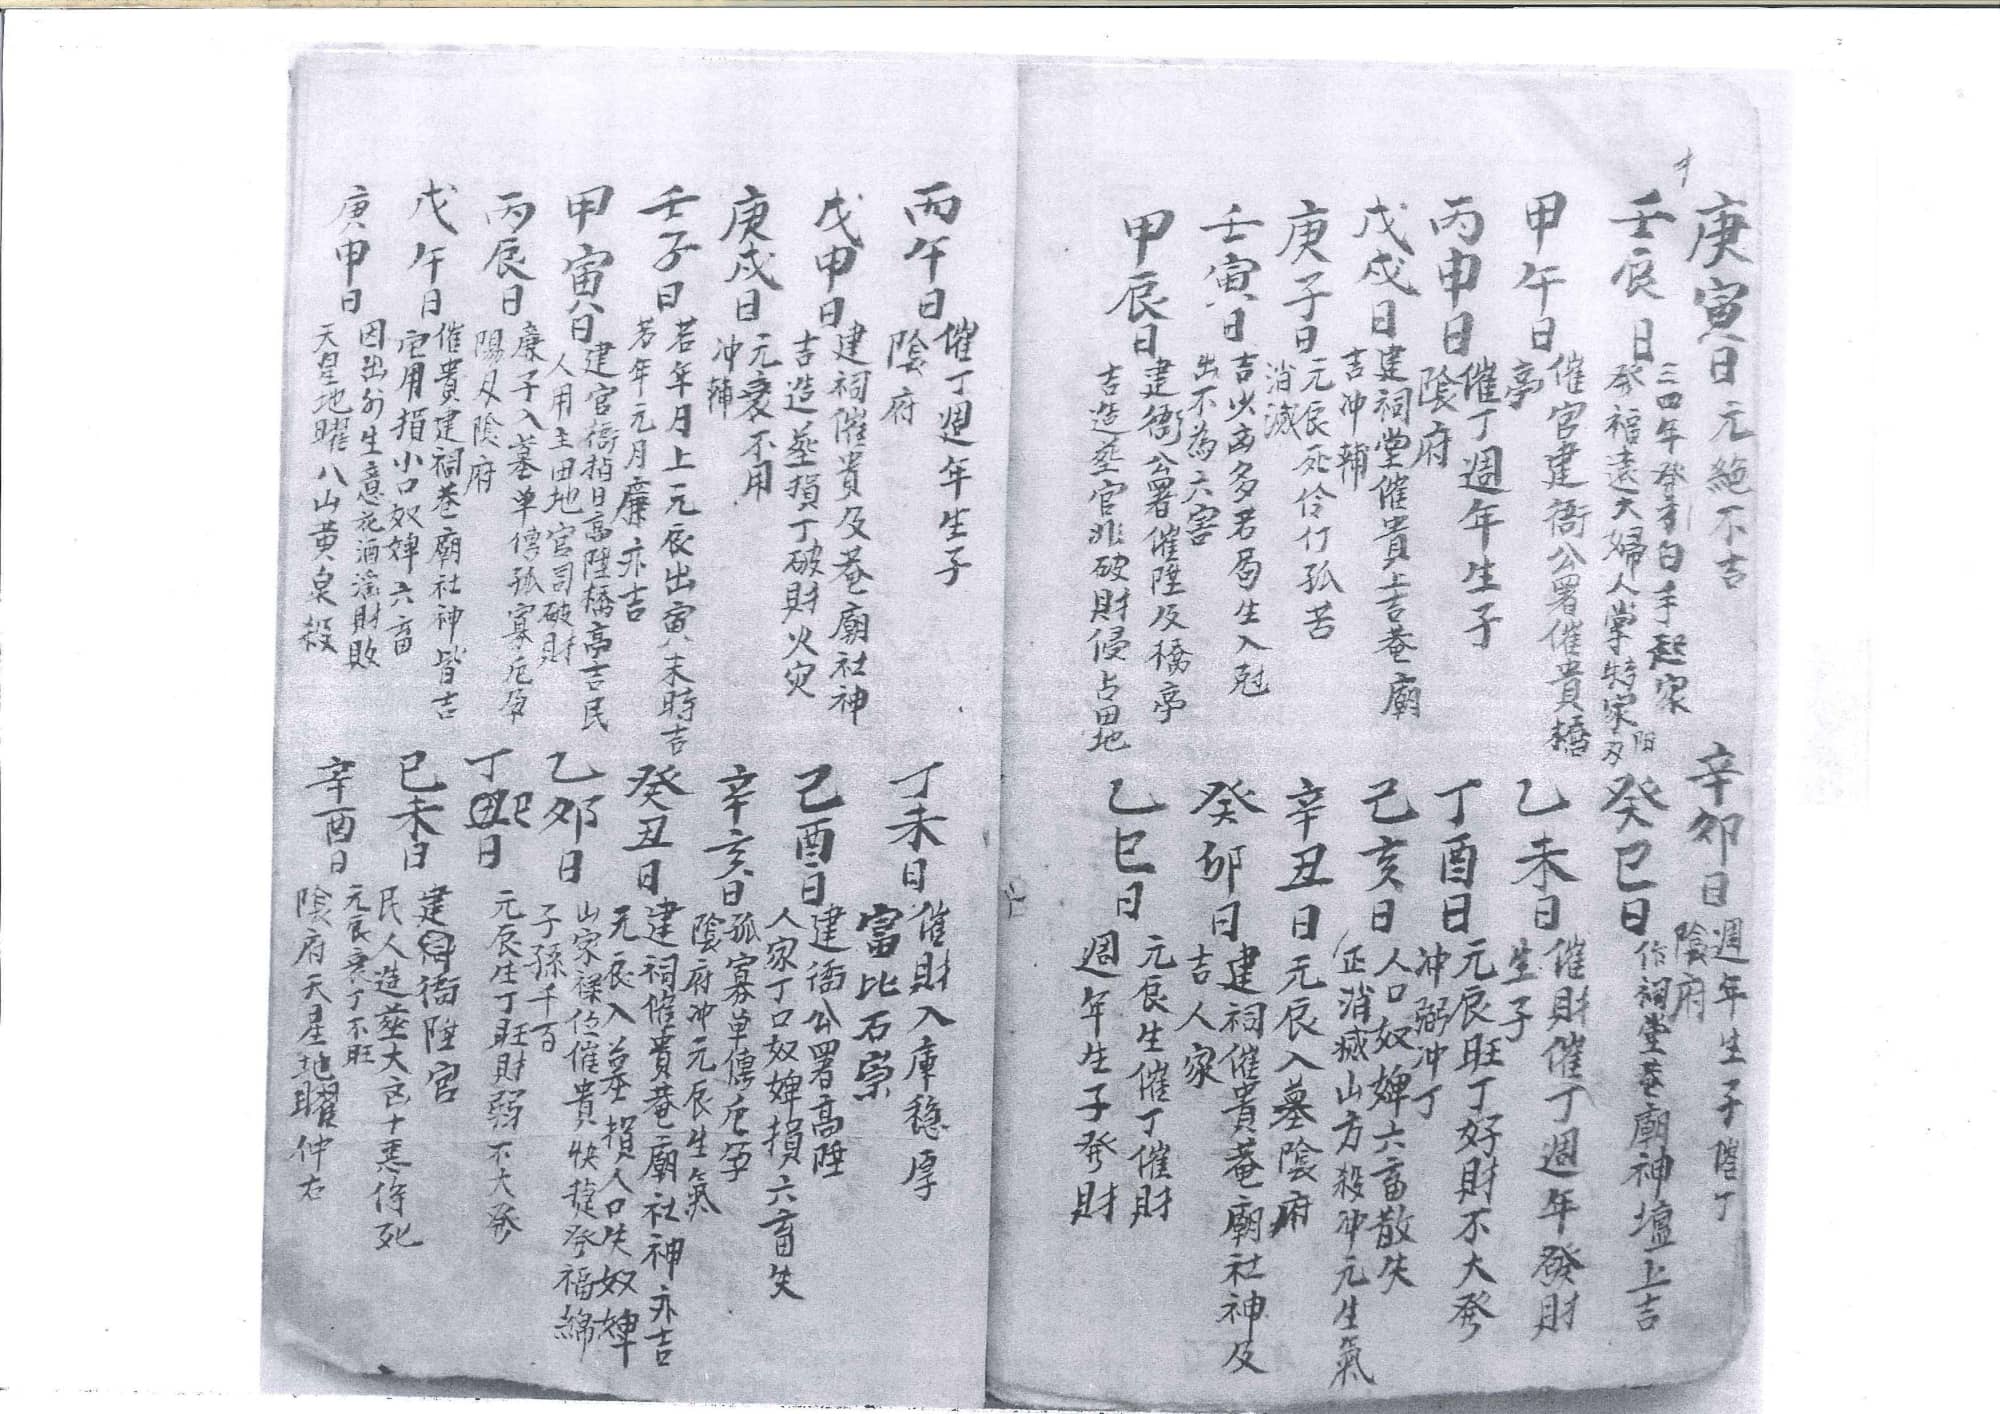 庚寅日 元絕不吉
辛卯日 週年生子催丁
陰府
壬辰日 三四年發才白手起家
發福遠大婦人掌特家陽刃
癸巳日 作祠堂菴廟神壇上吉
甲午日 催官建衙公署催貴橋
亭
乙未日 催財催丁週年發財
生子
丙申日 催丁週年生子
陰府
丁酉日 元辰旺丁好財不大發
冲弼冲丁
戊戌日 建祠堂催貴上吉菴廟
吉冲輔
己亥日 人口奴婢六畜散失
正消滅山方殺冲元生氣
庚子日 元辰死伶仃孤苦
消滅
辛丑日 元辰入墓陰府
壬寅日 吉少凶多若局生入尅
出不為六害
癸卯日 建祠催貴菴廟社神及
吉人家
甲辰日 建衙公署催陞及橋亭
吉造塟官非破財侵占田地
乙巳日 元辰生催丁催財
週年生子發財
丙午日 催丁週年生子
陰府
丁未日 催財入庫穩厚
富比石崇
戊申日 建祠催貴及菴廟社神
吉造塟損丁破財火災
己酉日 建衙公署高陞
人家丁口奴婢損六畜失
庚戌日 元衰不用
冲輔
辛亥日 孤寡单傳危孕
陰府冲元辰生氣
壬子日 若年月上元辰出寅未時吉
若年元月廉亦吉
癸丑日 建祠催貴菴廟社神亦吉
元辰入墓損人口失奴婢
甲寅日 建官衙掉日高陞橋亭吉民
人用主田地官司破財
乙卯日 山家祿位催貴快捷發福綿
子孫千百
丙辰日 廉子入墓单傳孤寡危孕
陽刃陰府
丁巳日 元辰生丁旺財弱不大發
戊午日 催貴建祠菴廟社神皆吉
宅用損小口奴婢六畜
己未日 建衙陞官
民人造塟大凶十惡侍死
庚申日 因出外生意花酒淫財敗
天皇地曜八山黄泉殺
辛酉日 元辰衰丁不旺
陰府天星地曜仲右